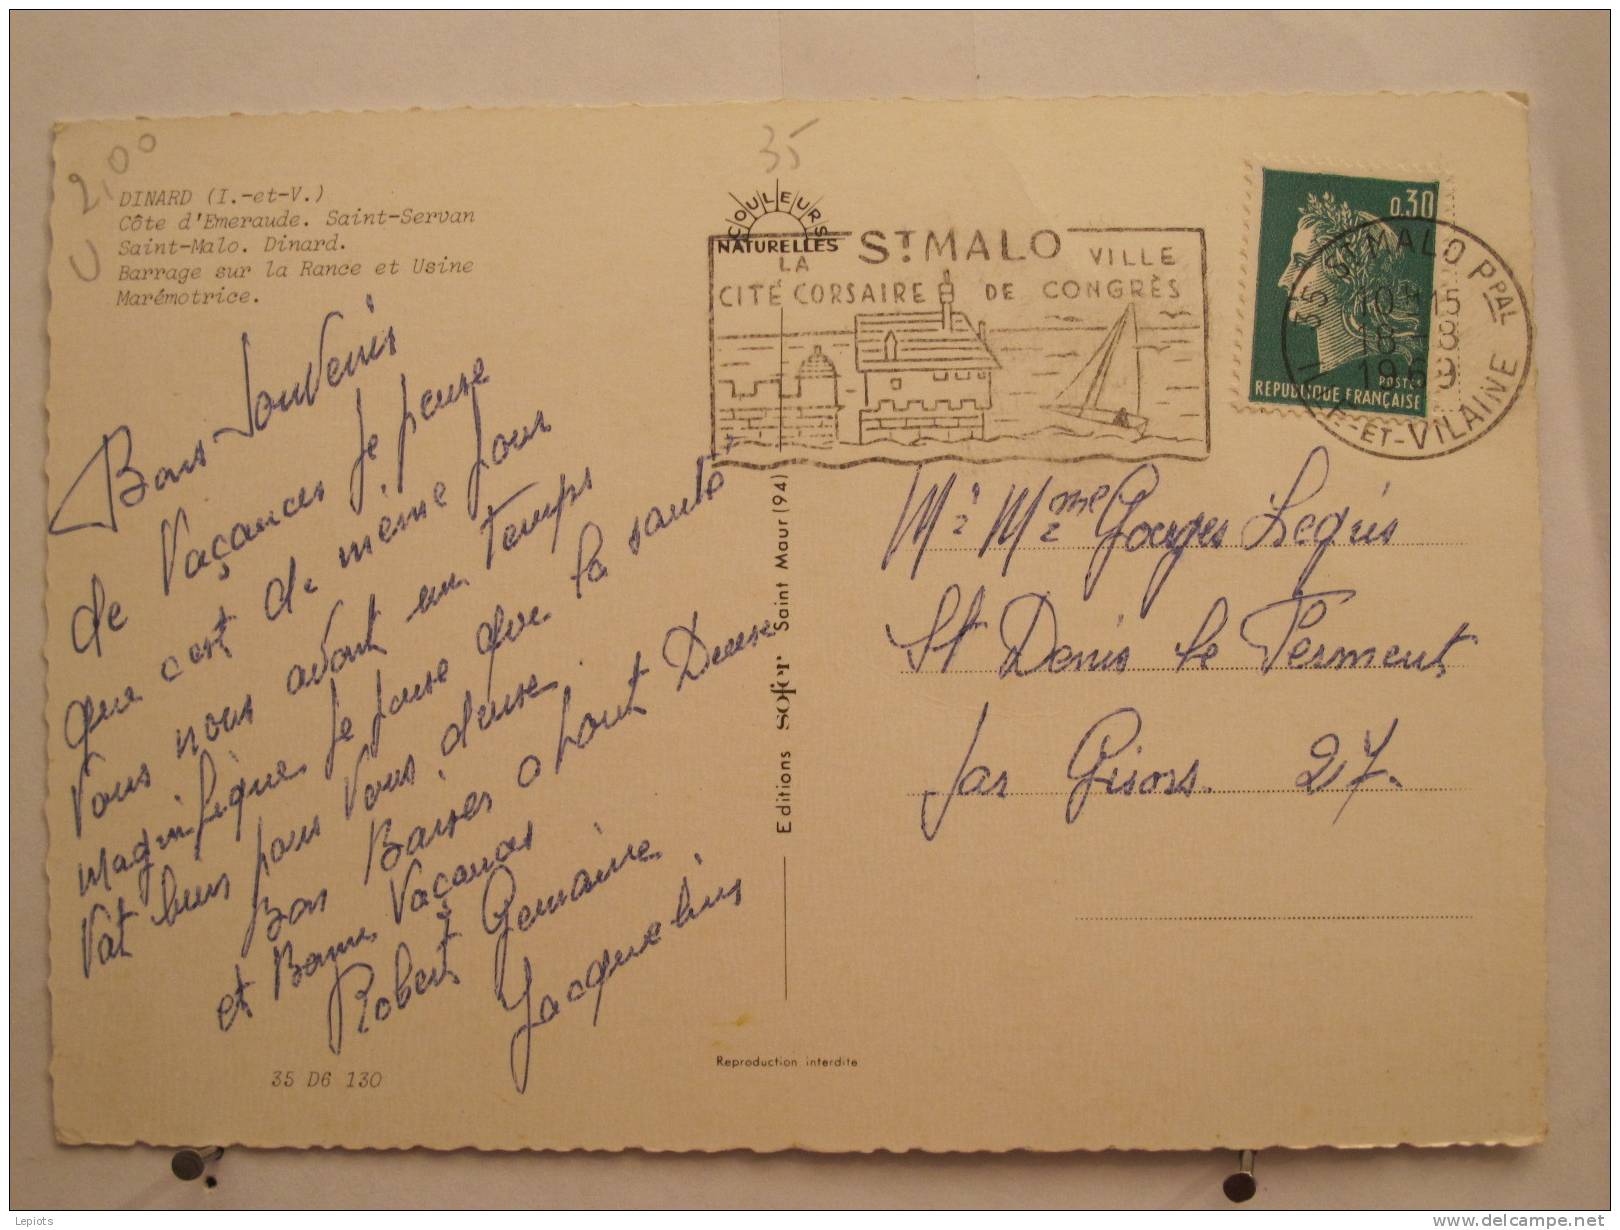 2,00
U
35
DINARD (I.-et-V.)
Côte d'Emeraude. Saint-Servan
Saint-Malo. Dinard.
Barrage sur la Rance et Usine
Marémotrice.
COULEURS
NATURELLES
ST MALO
LA
VILLE
CITÉ CORSAIRE
DE CONGRÈS
0.30
POSTES
REPUBLIQUE FRANÇAISE
35 ST MALO PPAL
10 H 15
18 - 8
1969
ILLE-ET-VILAINE
Bons Souvenirs
de Vaçances Je pense
que cest de même pour
Vous nous avont un temps
magnifique Je pense que la santé
Vat bien pour Vous deuse.
Bon Baises a tout Deuse
et Bonne Vaçances
Robert Germaine
Jacqueline
Mr Mme Gorges
St Denis le Ferment
par Gisors. 27.
Editions sofer Saint Maur (94)
Reproduction interdite
35 D6 130
Lepiots
www.delcampe.net